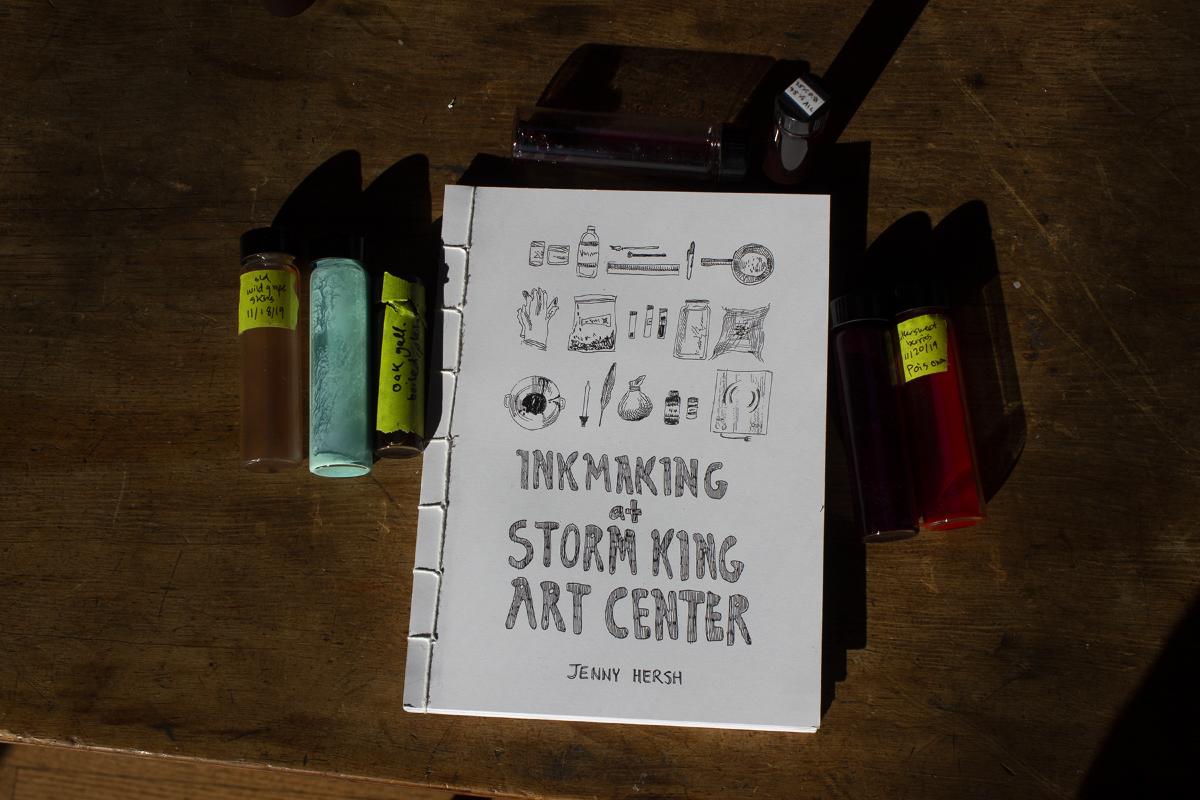 old
wild grape
skins
11/18/19
oak gall
INKMAKING
at
STORM KING
ART CENTER
JENNY HERSH
berries
11/20/19
Poison